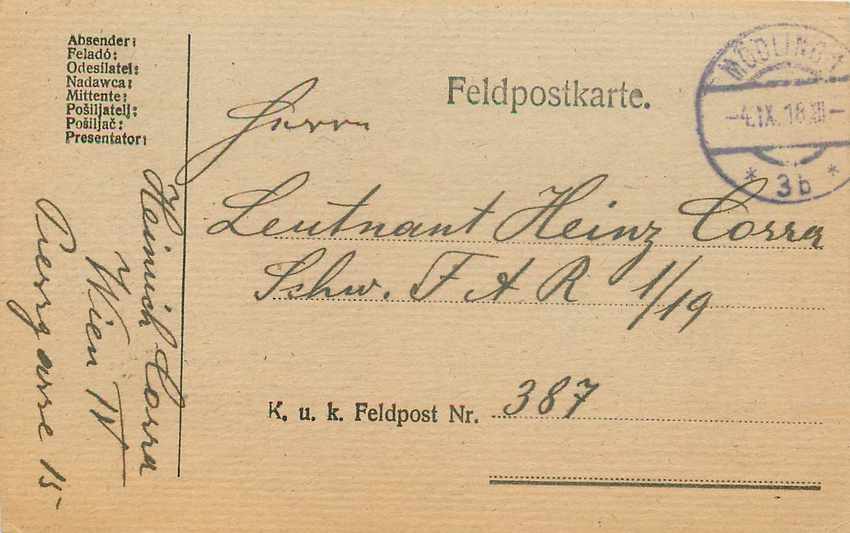 Absender:
Feladó:
Odesílatel:
Nadawca:
Mittente:
Pošiljatelj:
Pošiljač:
Presentator:
Heinrich Corra
Wien IV
15
Feldpostkarte.
MÖDLING 1
-4.IX.18 XII-
* 3b *
Herrn
Leutnant Heinz Corra
Schw. F A R 1/19
K. u. k. Feldpost Nr. 387